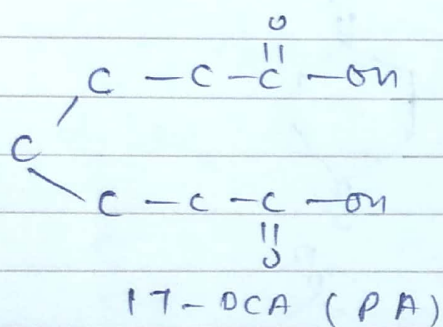 O
||
C — C — C — OH
/
C
\
C — C — C — OH
||
O
17-DCA (PA)